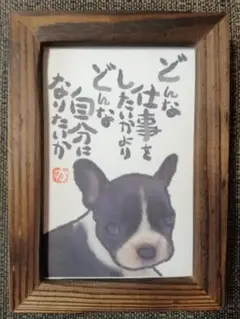 どんな
仕事を
したいかより
どんな
自分に
なりたいか